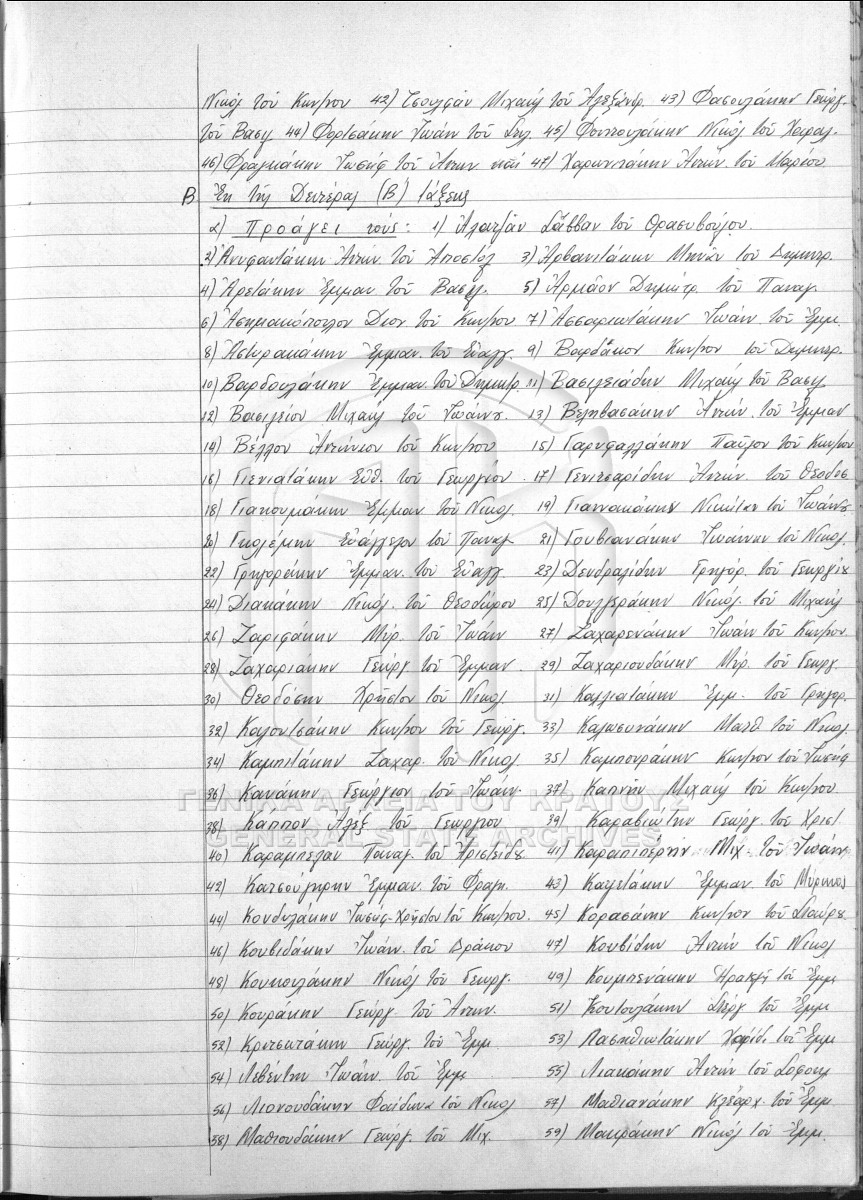 Νικολ τοῦ Κων/νου 42) Τσουλφᾶν Μιχαήλ τοῦ Ἀλεξάνδρ. 43) Φασουλάκην Γεώργ.
τοῦ Βασιλ 44) Φορτσάκην Ἰωάν τοῦ Στυλ. 45) Φουντουλάκην Νικολ τοῦ Χαραλ.
46) Φραγκάκην Ἰωσήφ τοῦ Ἀντων. καί 47) Χαρωνιτάκην Ἀντών. τοῦ Μαρίνου
Β Ἐκ τῆς Δευτέρας (Β) τάξεως
α) Προάγει τούς: 1) Ἀλατζᾶν Σάββαν τοῦ Θρασυβούλου.
2) Ἀνυφαντάκην Ἀντών. τοῦ Ἀποστόλ 3) Ἀρβανιτάκην Μηνᾶν τοῦ Δημητρ.
4) Ἀρετάκην Ἐμμαν. τοῦ Βασιλ. 5) Ἀρμάον Δημήτρ. τοῦ Παναγ.
6) Ἀσημακόπουλον Διον. τοῦ Κων/νου 7) Ἀσσαριωτάκην Ἰωάν. τοῦ Ἐμμ.
8) Ἀστυρακάκην Ἐμμαν. τοῦ Εὐαγγ. 9) Βαρδάκον Κων/νον τοῦ Δημητρ.
10) Βαρδουλάκην Ἐμμαν. τοῦ Δημητρ. 11) Βασιλειάδην Μιχαήλ τοῦ Βασιλ.
12) Βασιλείου Μιχαήλ τοῦ Ἰωάννου. 13) Βεληβασάκην Ἀντών. τοῦ Ἐμμαν
14) Βέλλον Ἀντώνιον τοῦ Κων/νου 15) Γαρυφαλλάκην Παῦλον τοῦ Κων/νου
16) Γενιατάκην Εὐθ. τοῦ Γεωργίου. 17) Γενιτσαρίδην Ἀντών. τοῦ Θεοδοσ
18) Γιαπουμάκην Ἐμμαν τοῦ Νικολ 19) Γιαννακάκην Νικόλαον τοῦ Ἰωάννου
20) Εὐάγγελον τοῦ Παναγ 21) Γουβιανάκην Ἰωάννην τοῦ Νικολ.
22) Γρηγοράκην Ἐμμαν. τοῦ Εὐαγγ. 23) Δενδραλίδην Γρηγόρ. τοῦ Γεωργίου
24) Διακάκην Νικόλ. τοῦ Θεοδώρου 25) Δουλγεράκην Νικόλ. τοῦ Μιχαήλ
26) Ζαριφάκην Μύρ. τοῦ Ἰωάν 27) Ζαχαρενάκην Ἰωάν τοῦ Κων/νου
28) Ζαχαριάκην Γεώργ. τοῦ Ἐμμαν. 29) Ζαχαριουδάκην Μύρ. τοῦ Γεωργ.
30) Θεοδόσην Χρῆστον τοῦ Νικολ 31) Καλλιατάκην Ἐμμ. τοῦ Γρηγορ.
32) Καλουτσάκην Κων/νον τοῦ Γεώργ. 33) Καλωσυνάκην Ματθ τοῦ Νικολ
34) Καμπιτάκην Ζαχαρ. τοῦ Νικολ 35) Καμπουράκην Κων/νον τοῦ Ἰωσήφ
36) Κανάκην Γεώργιον τοῦ Ἰωάν. 37) Καπνᾶν Μιχαήλ τοῦ Κων/νου
38) Κάππον Ἀλεξ τοῦ Γεωργίου 39) Καραβιώτην Γεώργ. τοῦ Χρισ/
40) Καραμπελαν Παναγ. τοῦ Ἀριστείδου 41) Καραπιπέρην Μιχ. τοῦ Ἰωάν
42) Κατσούγκρην Ἐμμαν. τοῦ Φραγκ. 43) Καψετάκην Ἐμμαν. τοῦ Μύρωνος
44) Κονδυλάκην Ἰωσήφ-Χρῆστον τοῦ Κων/νου. 45) Κορασάνην Κων/νον τοῦ Σταύρου
46) Κουβιδάκην Ἰωάν. τοῦ Δράκου 47) Κουβίδην Ἀντών τοῦ Νικολ
48) Κουκουλάκην Νικόλ τοῦ Γεωργ. 49) Κουμπενάκην Ἡρακλῆ τοῦ Ἐμμ
50) Κουράκην Γεώργ. τοῦ Ἀντων. 51) Κουτουλάκην Στέργ τοῦ Ἐμμ
52) Κριτσωτάκην Γεώργ. τοῦ Ἐμμ 53) Λασηθιωτάκην Χαρίδ. τοῦ Ἐμμ
54) Λεβέντην Ἰωάν. τοῦ Ἐμμ 55) Λιακάκην Ἀντών τοῦ Σοφοκλ
56) Λιονουδάκην Φαίδωνα τοῦ Νικολ 57) Μαθιανάκην Κλέαρχ. τοῦ Ἐμμ
58) Μαθιουδάκην Γεώργ. τοῦ Μιχ. 59) Μακράκην Νικόλ τοῦ Ἐμμ.
ΓΕΝΙΚΑ ΑΡΧΕΙΑ ΤΟΥ ΚΡΑΤΟΥΣ
GENERAL STATE ARCHIVES